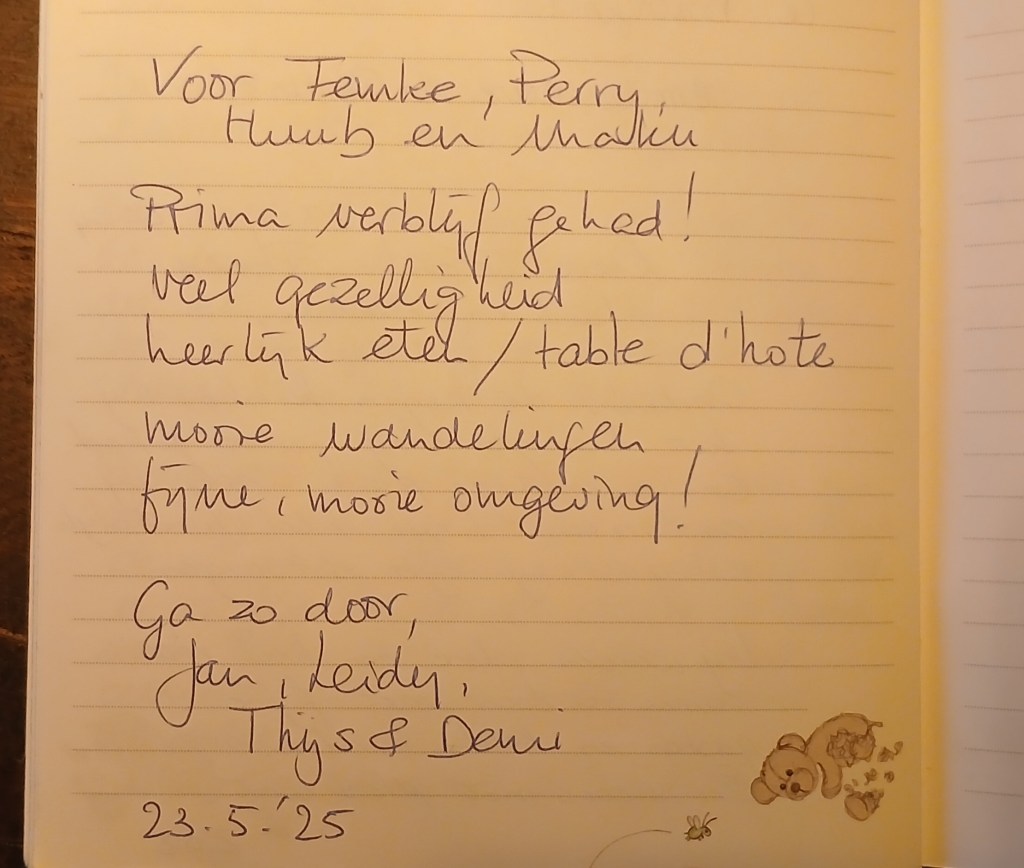 Voor Femke, Perry,
Huub en
Prima verblijf gehad!
veel gezelligheid
heerlijk eten / table d'hote
mooie wandelingen
fijne, mooie omgeving!
Ga zo door,
Jan, Leidy,
Thijs & Demi
23.5.'25